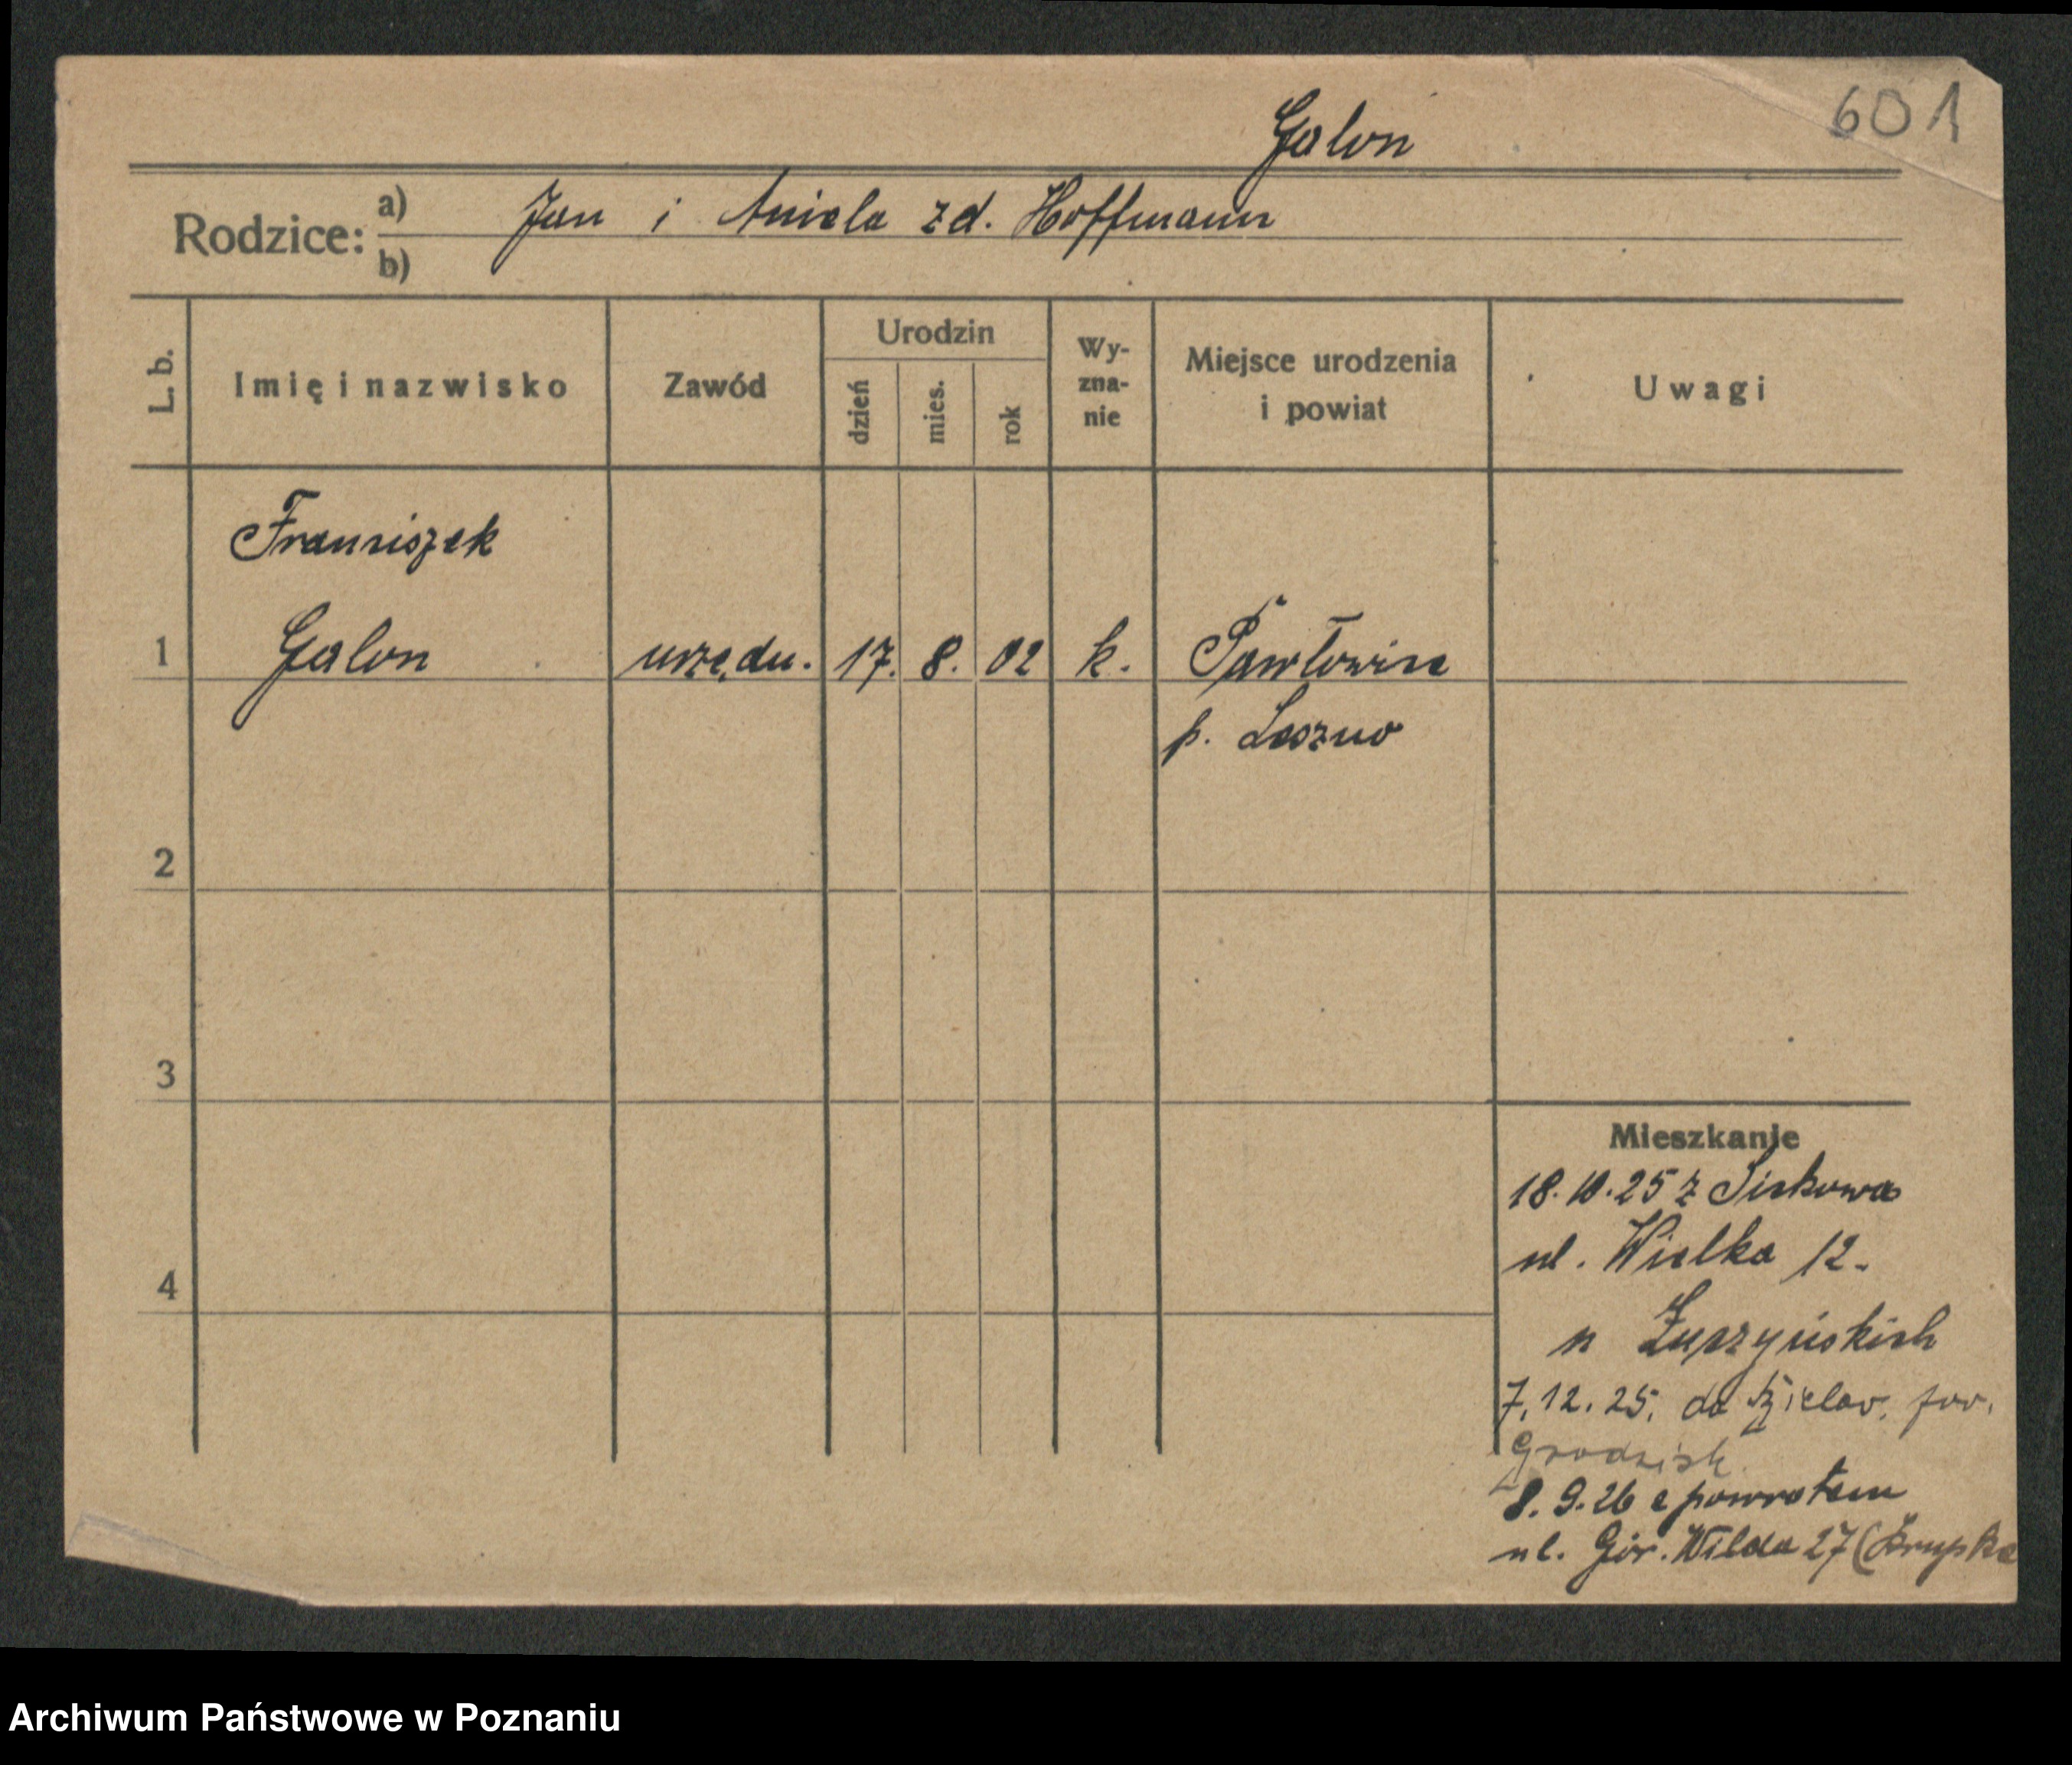 601
Galon
Rodzice: a) Jan i Aniela zd. Hoffmann
b)
L. b.
Imię i nazwisko
Zawód
Urodzin
dzień
mies.
rok
Wy-
zna-
nie
Miejsce urodzenia
i powiat
Uwagi
Franciszek
1 Galon urzędn. 17. 8. 02 k. Pawłowice
p. Leszno
2
3
4
Mieszkanie
18.10.25 z
ul. Wielka 12.
u
7.12.25. do pow.
Grodzisk
8.9.26 z powrotem
ul. Gór. Wilda 27 (Krupka
Archiwum Państwowe w Poznaniu